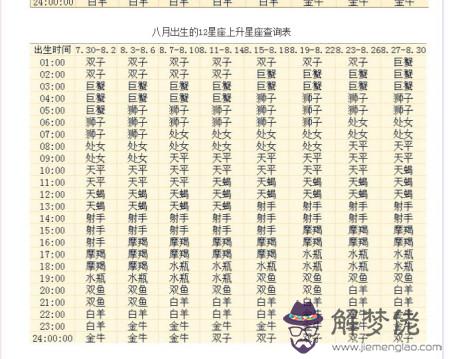 24:00:00 白羊 白羊 白羊 白羊 白羊 金牛 金牛 金牛
八月出生的12星座上升星座查询表
出生时间 7.30-8.2 8.3-8.6 8.7-8.10 8.11-8.14 8.15-8.18 8.19-8.22 8.23-8.26 8.27-8.30
01:00 双子 双子 双子 双子 双子 双子 双子 巨蟹
02:00 双子 双子 双子 双子 巨蟹 巨蟹 巨蟹 巨蟹
03:00 巨蟹 巨蟹 巨蟹 巨蟹 巨蟹 巨蟹 巨蟹 巨蟹
04:00 巨蟹 巨蟹 巨蟹 巨蟹 狮子 狮子 狮子 狮子
05:00 巨蟹 狮子 狮子 狮子 狮子 狮子 狮子 狮子
06:00 狮子 狮子 狮子 狮子 狮子 狮子 处女 处女
07:00 狮子 狮子 处女 处女 处女 处女 处女 处女
08:00 处女 处女 处女 处女 处女 处女 天平 天平
09:00 处女 处女 天平 天平 天平 天平 天平 天平
10:00 天平 天平 天平 天平 天平 天平 天平 天蝎
11:00 天平 天平 天平 天蝎 天蝎 天蝎 天蝎 天蝎
12:00 天蝎 天蝎 天蝎 天蝎 天蝎 天蝎 天蝎 天蝎
13:00 天蝎 天蝎 天蝎 天蝎 射手 射手 射手 射手
14:00 射手 射手 射手 射手 射手 射手 射手 射手
15:00 射手 射手 射手 射手 射手 摩羯 摩羯 摩羯
16:00 射手 摩羯 摩羯 摩羯 摩羯 摩羯 摩羯 摩羯
17:00 摩羯 摩羯 摩羯 摩羯 摩羯 水瓶 水瓶 水瓶
18:00 摩羯 摩羯 水瓶 水瓶 水瓶 水瓶 水瓶 水瓶
19:00 水瓶 水瓶 水瓶 水瓶 水瓶 双鱼 双鱼 双鱼
20:00 双鱼 双鱼 双鱼 双鱼 双鱼 白羊
21:00 双鱼 双鱼 白羊 白羊 白羊
22:00 白羊 白羊 白羊 白羊 金牛
23:00 白羊 金牛 金牛 金牛 金牛
24:00:00 金牛 金牛 金牛 双子 双子 双子 双子 双子
解梦佬
www.jiemenglao.com